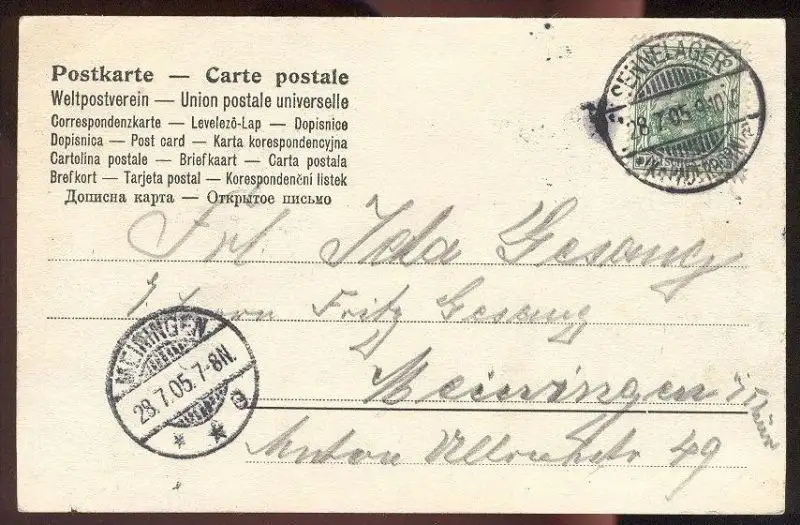 Postkarte — Carte postale
Weltpostverein — Union postale universelle
Correspondenzkarte — Levelező-Lap — Dopisnice
Dopisnica — Post card — Karta korespondencyjna
Cartolina postale — Briefkaart — Carta postala
Brefkort — Tarjeta postal — Korespondenční listek
Дописна карта — Открытое письмо
SENNELAGER
28.7.05.9-10V.
*(KR.PADERBORN)*
Frl Ida Gesang
Herrn Fritz Gesang
Meiningen i/Thür
Anton Ullrichstr 49
MEININGEN
28.7.05.7-8N.
* * c